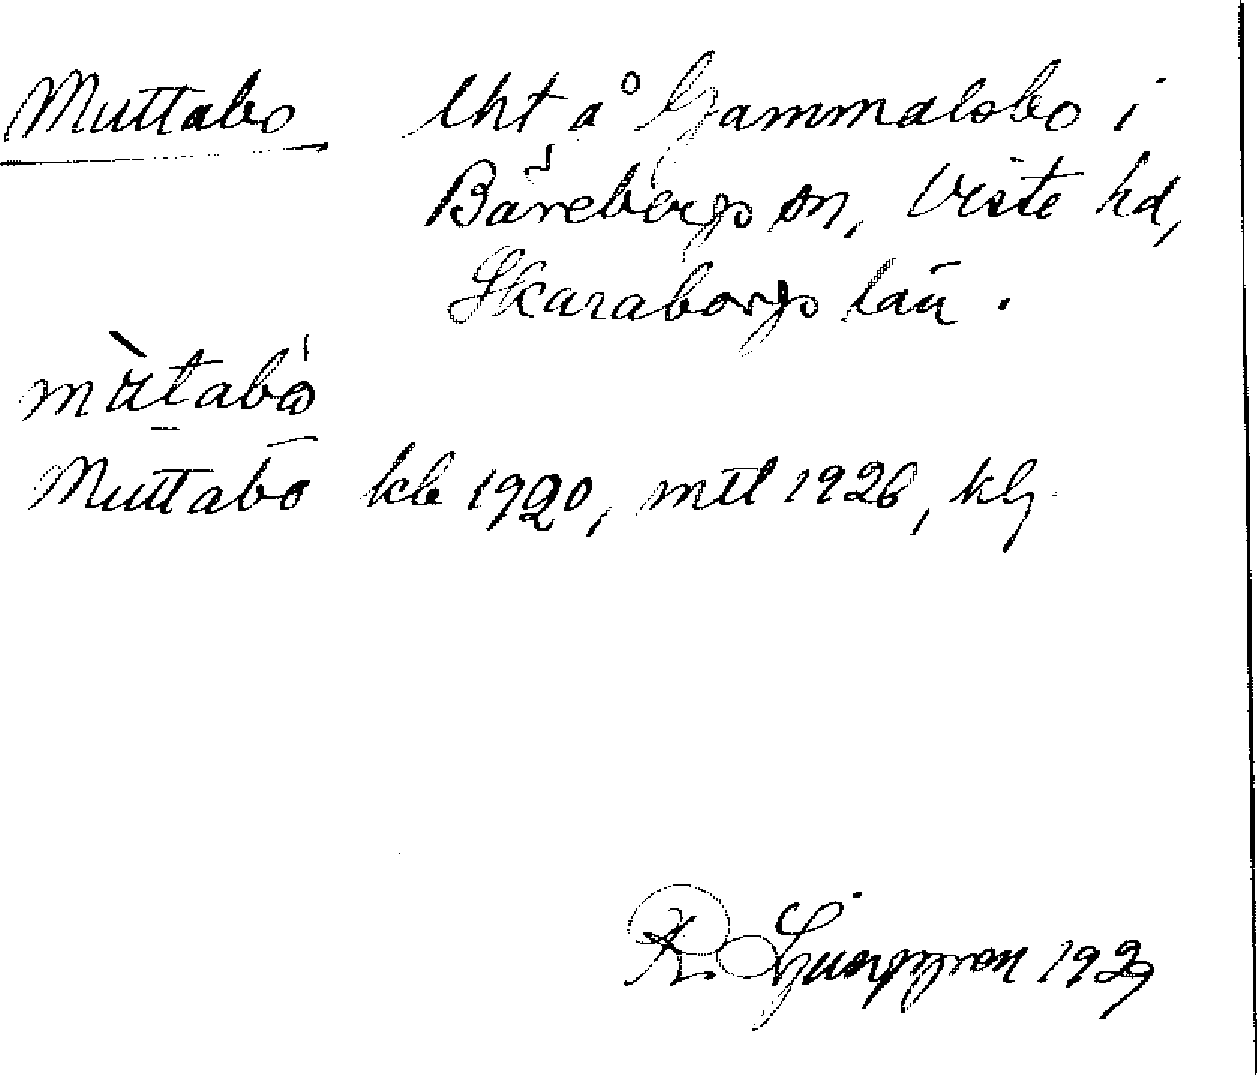 Muttabo lht å Gammalsbo i
Bärebergs sn, Viste hd,
Skaraborgs län.
mùtabó
Muttabo kb 1920, mtl 1926, klj
R. Ljunggren 1929